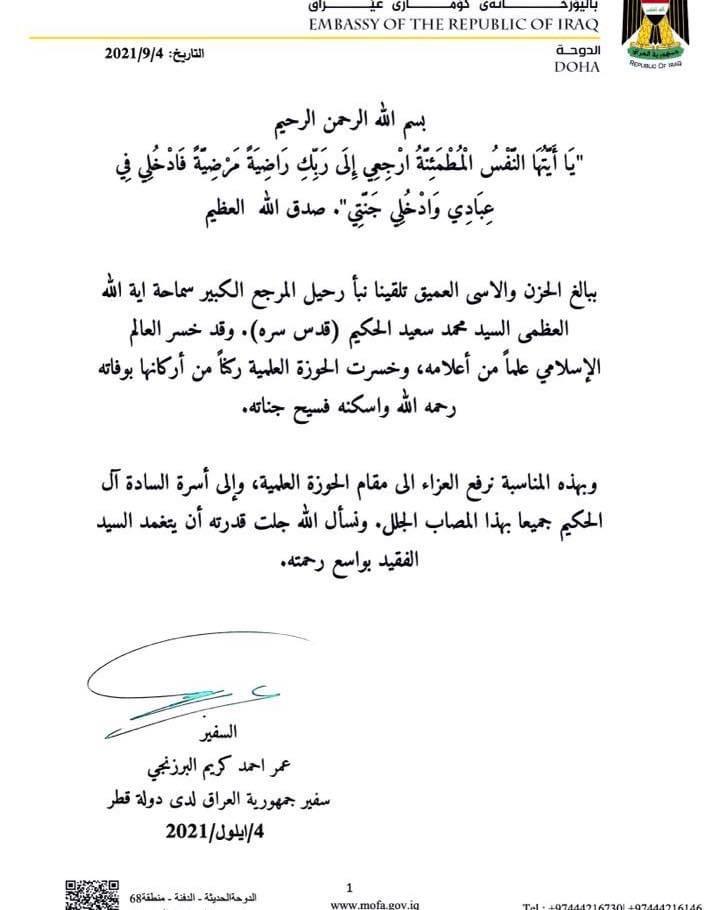 EMBASSY OF THE REPUBLIC OF IRAQ
الدوحـة
DOHA
REPUBLIC OF IRAQ
التاريخ: 2021/9/4
بسم الله الرحمن الرحيم
"يَا أَيَّتُهَا النَّفْسُ الْمُطْمَئِنَّةُ ارْجِعِي إِلَى رَبِّكِ رَاضِيَةً مَرْضِيَّةً فَادْخُلِي فِي
عِبَادِي وَادْخُلِي جَنَّتِي". صدق الله العظيم
ببالغ الحزن والاسى العميق تلقينا نبأ رحيل المرجع الكبير سماحة اية الله
العظمى السيد محمد سعيد الحكيم (قدس سره). وقد خسر العالم
الإسلامي علماً من أعلامه، وخسرت الحوزة العلمية ركناً من أركانها بوفاته
رحمه الله واسكنه فسيح جناته.
وبهذه المناسبة نرفع العزاء الى مقام الحوزة العلمية، وإلى أسرة السادة آل
الحكيم جميعا بهذا المصاب الجلل. ونسأل الله جلت قدرته أن يتغمد السيد
الفقيد بواسع رحمته.
السفير
عمر احمد كريم البرزنجي
سفير جمهورية العراق لدى دولة قطر
4/ايلول/2021
1
الدوحةالحديثة - الدفنة - منطقة68
www.mofa.gov.iq
Tel : +97444216730| +97444216146